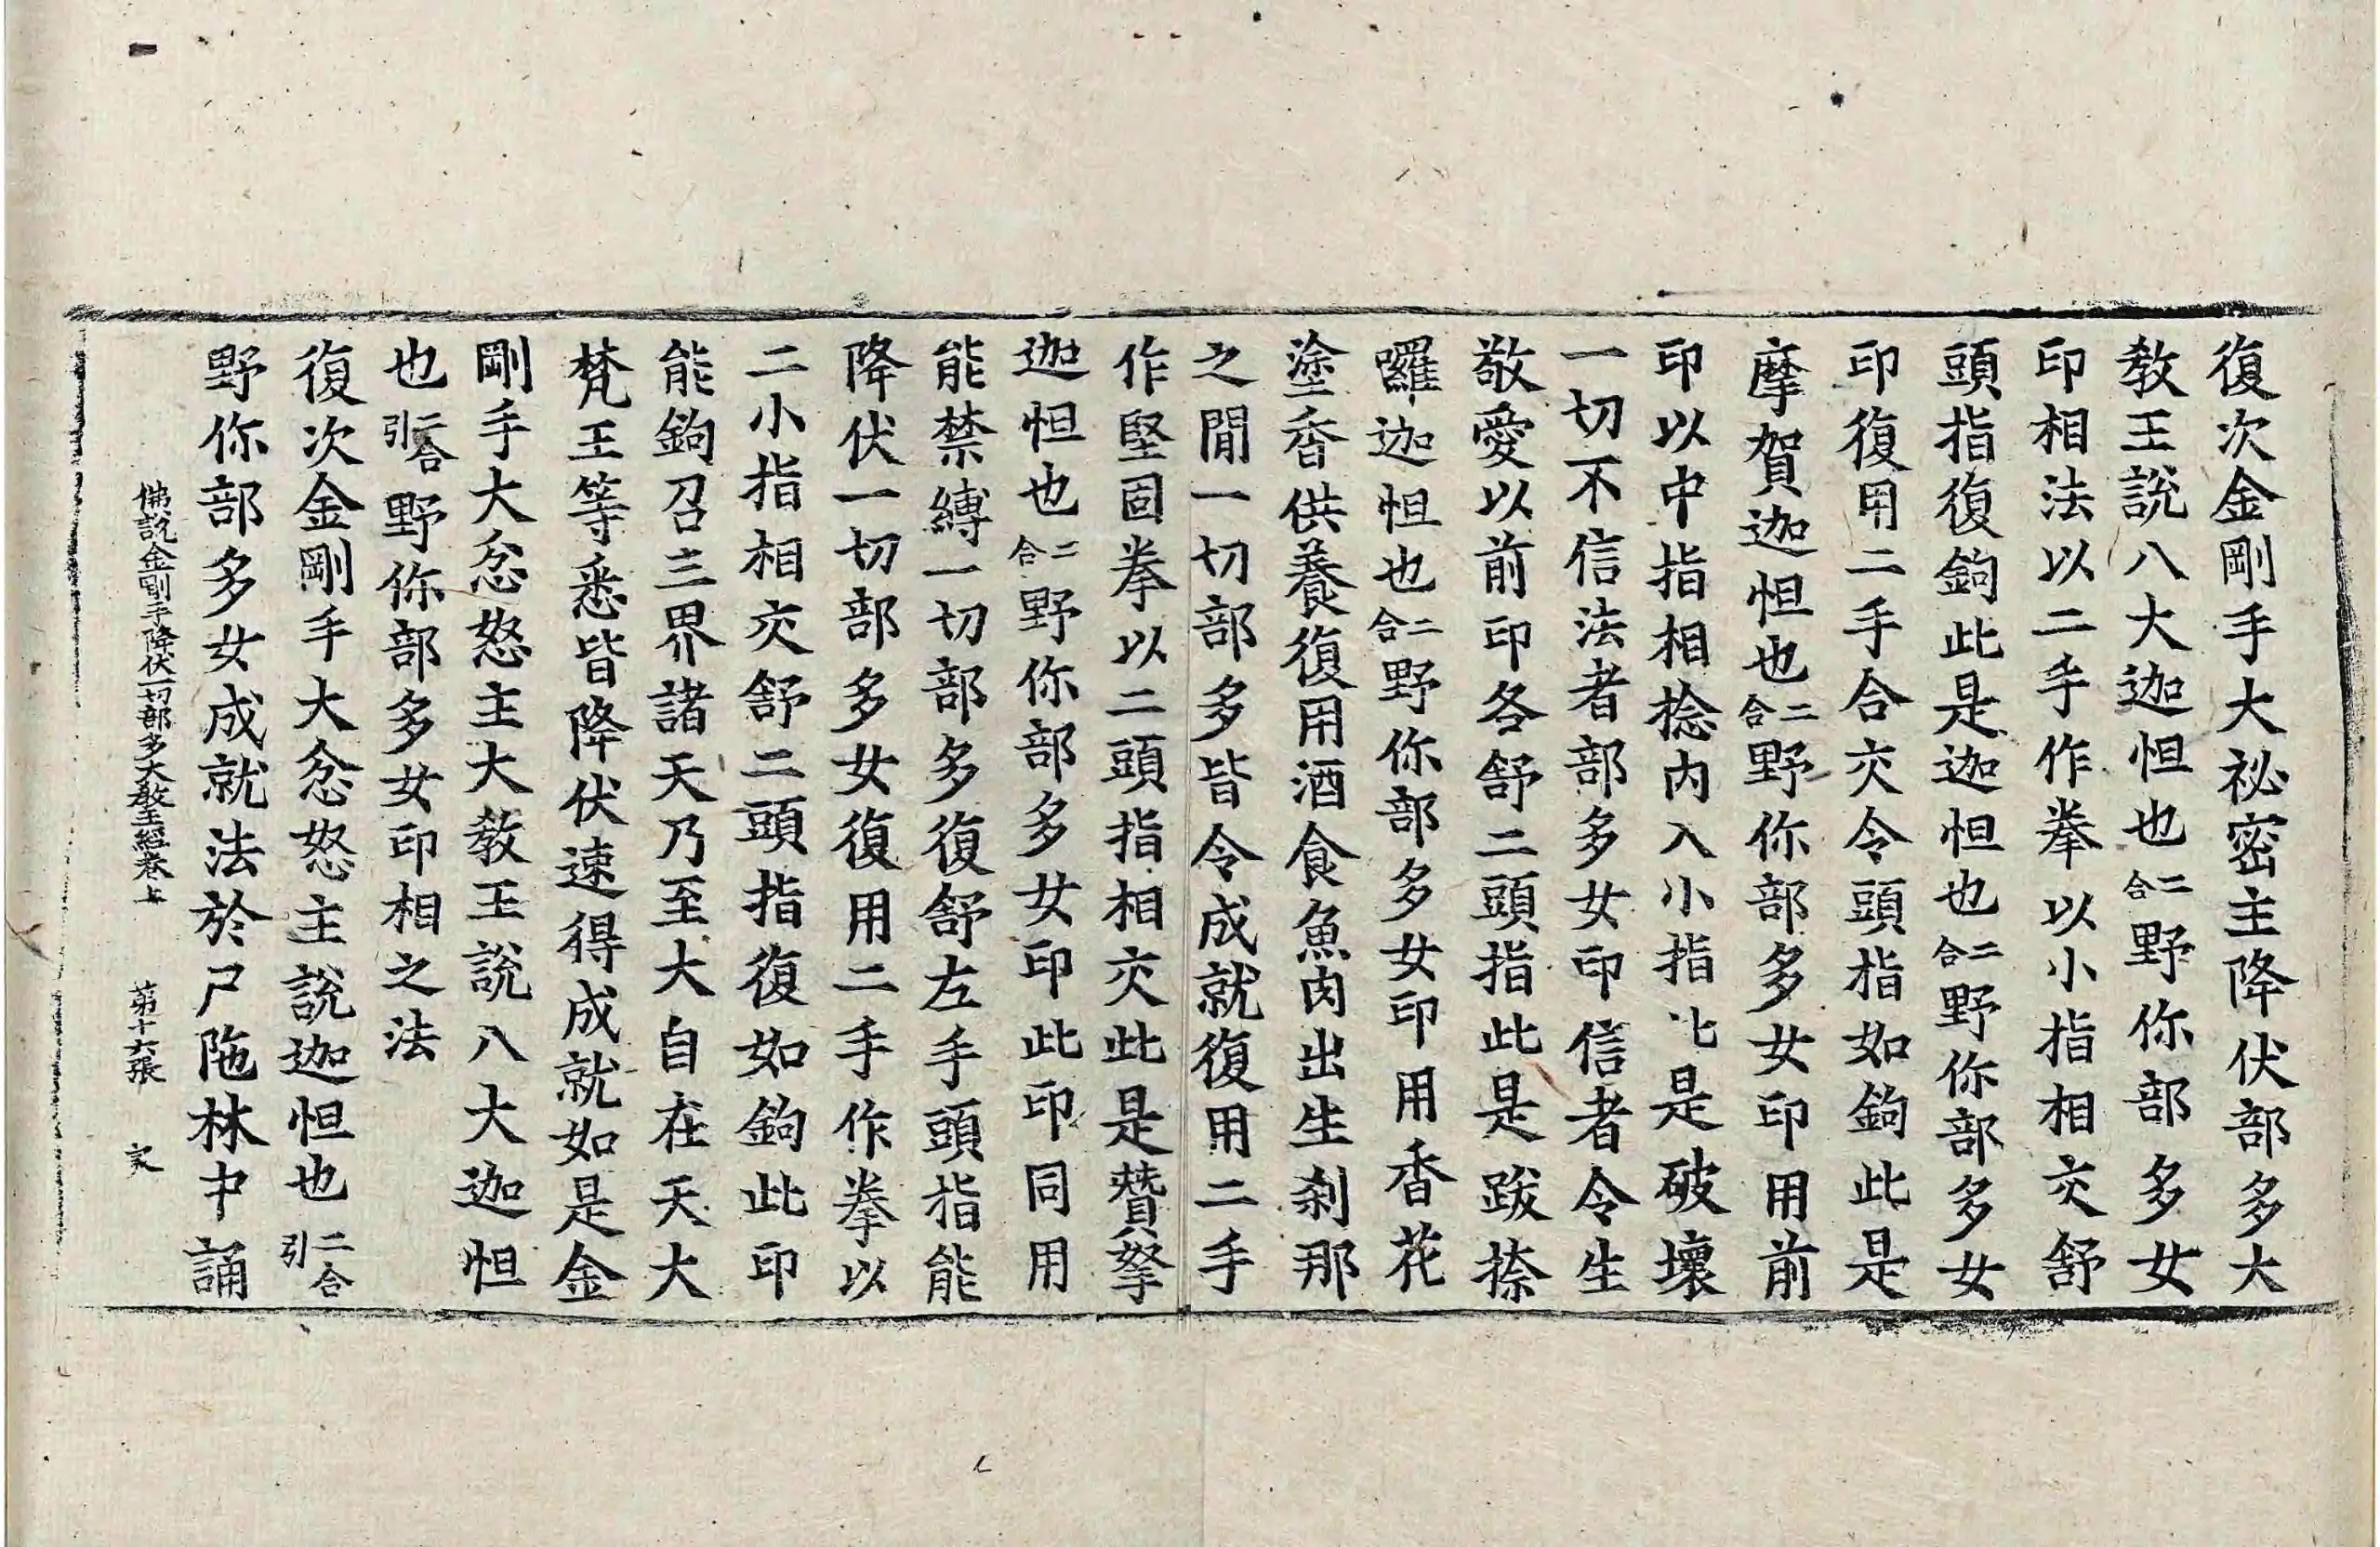 復次金剛手大祕密主降伏部多大
教王說八大迦怛也二合野你部多女
印相法以二手作拳以小指相交舒
頭指復鉤此是迦怛也二合野你部多女
印復用二手合交令頭指如鉤此是
摩賀迦怛也二合野你部多女印用前
印以中指相捻内入小指此是破壞
一切不信法者部多女印信者令生
敬愛以前印各舒二頭指此是跋捺
囉迦怛也二合野你部多女印用香花
塗香供養復用酒食魚肉出生剎那
之閒一切部多皆令成就復用二手
作堅固拳以二頭指相交此是贊拏
迦怛也二合野你部多女印此印同用
能禁縛一切部多復舒左手頭指能
降伏一切部多女復用二手作拳以
二小指相交舒二頭指復如鉤此印
能鉤召三界諸天乃至大自在天大
梵王等悉皆降伏速得成就如是金
剛手大忿怒主大教王說八大迦怛
也二合引野你部多女印相之法
復次金剛手大忿怒主說迦怛也二合引
野你部多女成就法於尸陁林中誦
佛說金剛手降伏一切部多大教王經卷上 第十六張 家